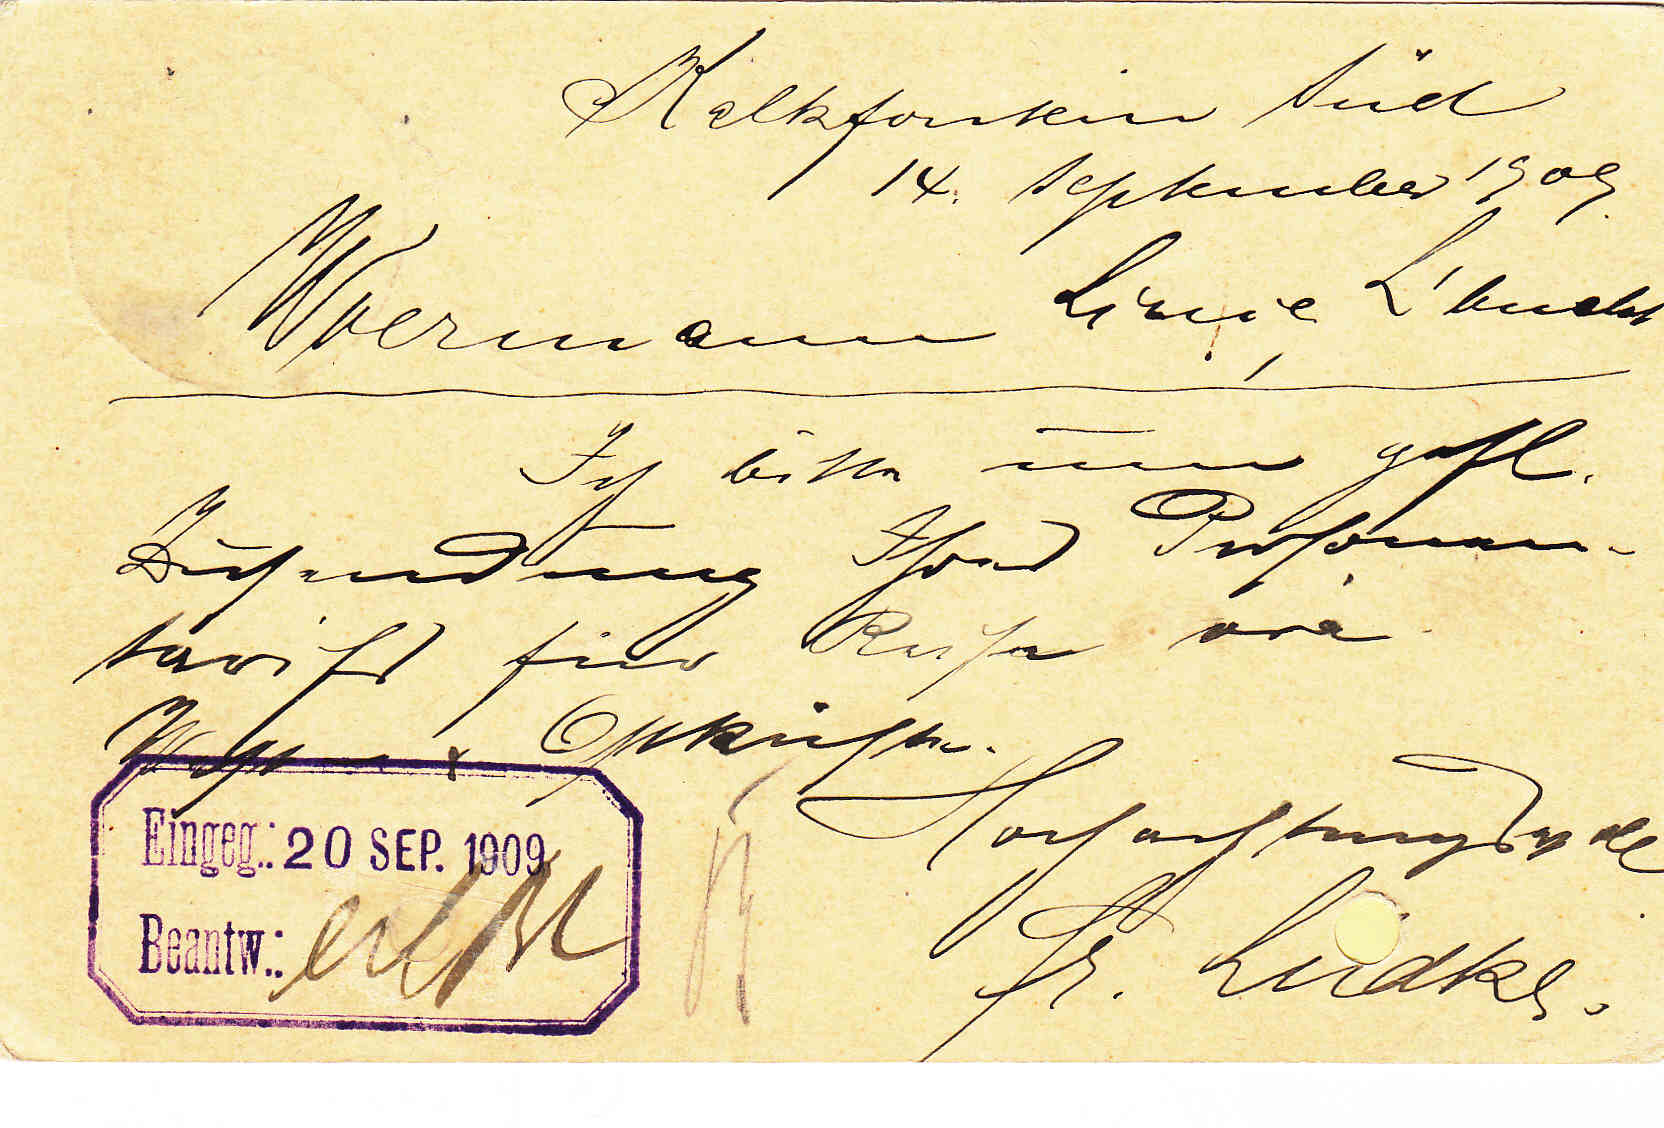 Kalkfontein Süd
14. September 1909.
Woermann Linie, L'bucht
Ich bitte um gefl.
Zusendung Ihres Personen-
tarifs für Reise via
West- & Ostküste.
Hochachtungsvoll
Fr. Lüdke.
Eingeg.: 20 SEP. 1909
Beantw.: